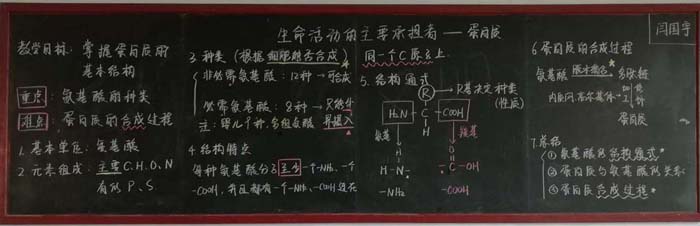 生命活动的主要承担者——蛋白质
闫国宇
教学目标: 掌握蛋白质的
基本结构
重点: 氨基酸的种类
难点: 蛋白质的合成过程
1. 基本单位: 氨基酸
2. 元素组成: 主要C.H.O.N
有的 P、S
3. 种类 (根据细胞能否合成)
非必需氨基酸: 12种 → 可合成
必需氨基酸: 8种 →
注: 婴儿9种, 多组氨酸
4. 结构特点
每种氨基酸分子至少一个-NH₂、一个
-COOH, 并且都有一个-NH₂、-COOH连在
同一个C原子上.
5. 结构通式
R → R基决定种类
(性质)
H₂N - C - COOH
H
氨基
羧基
H-N-
O
-C-OH
-NH₂
-COOH
6. 蛋白质的合成过程
氨基酸 脱水缩合 多肽链
内质网.高尔基体 加工
蛋白质
7. 总结
① 氨基酸的结构通式*
② 蛋白质与氨基酸的关系
③ 蛋白质合成过程*